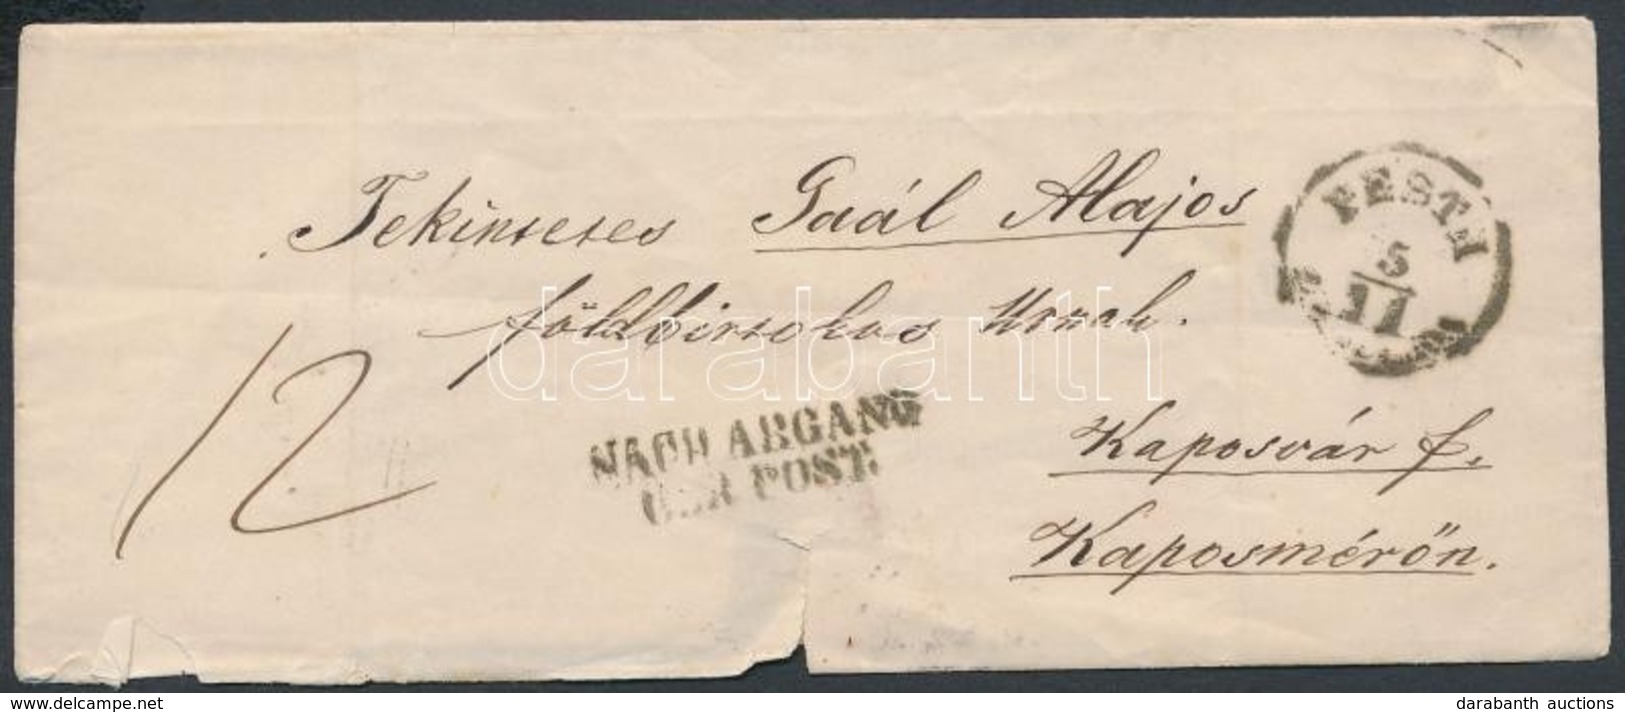 PESTH
5/11
Tekintetes Gaál Alajos
földbirtokos Urnak.
12
NACH ABGANG
DER POST.
Kaposvár f.
Kaposmérőn.
darabanth
www.delcampe.net
darabanth auctions